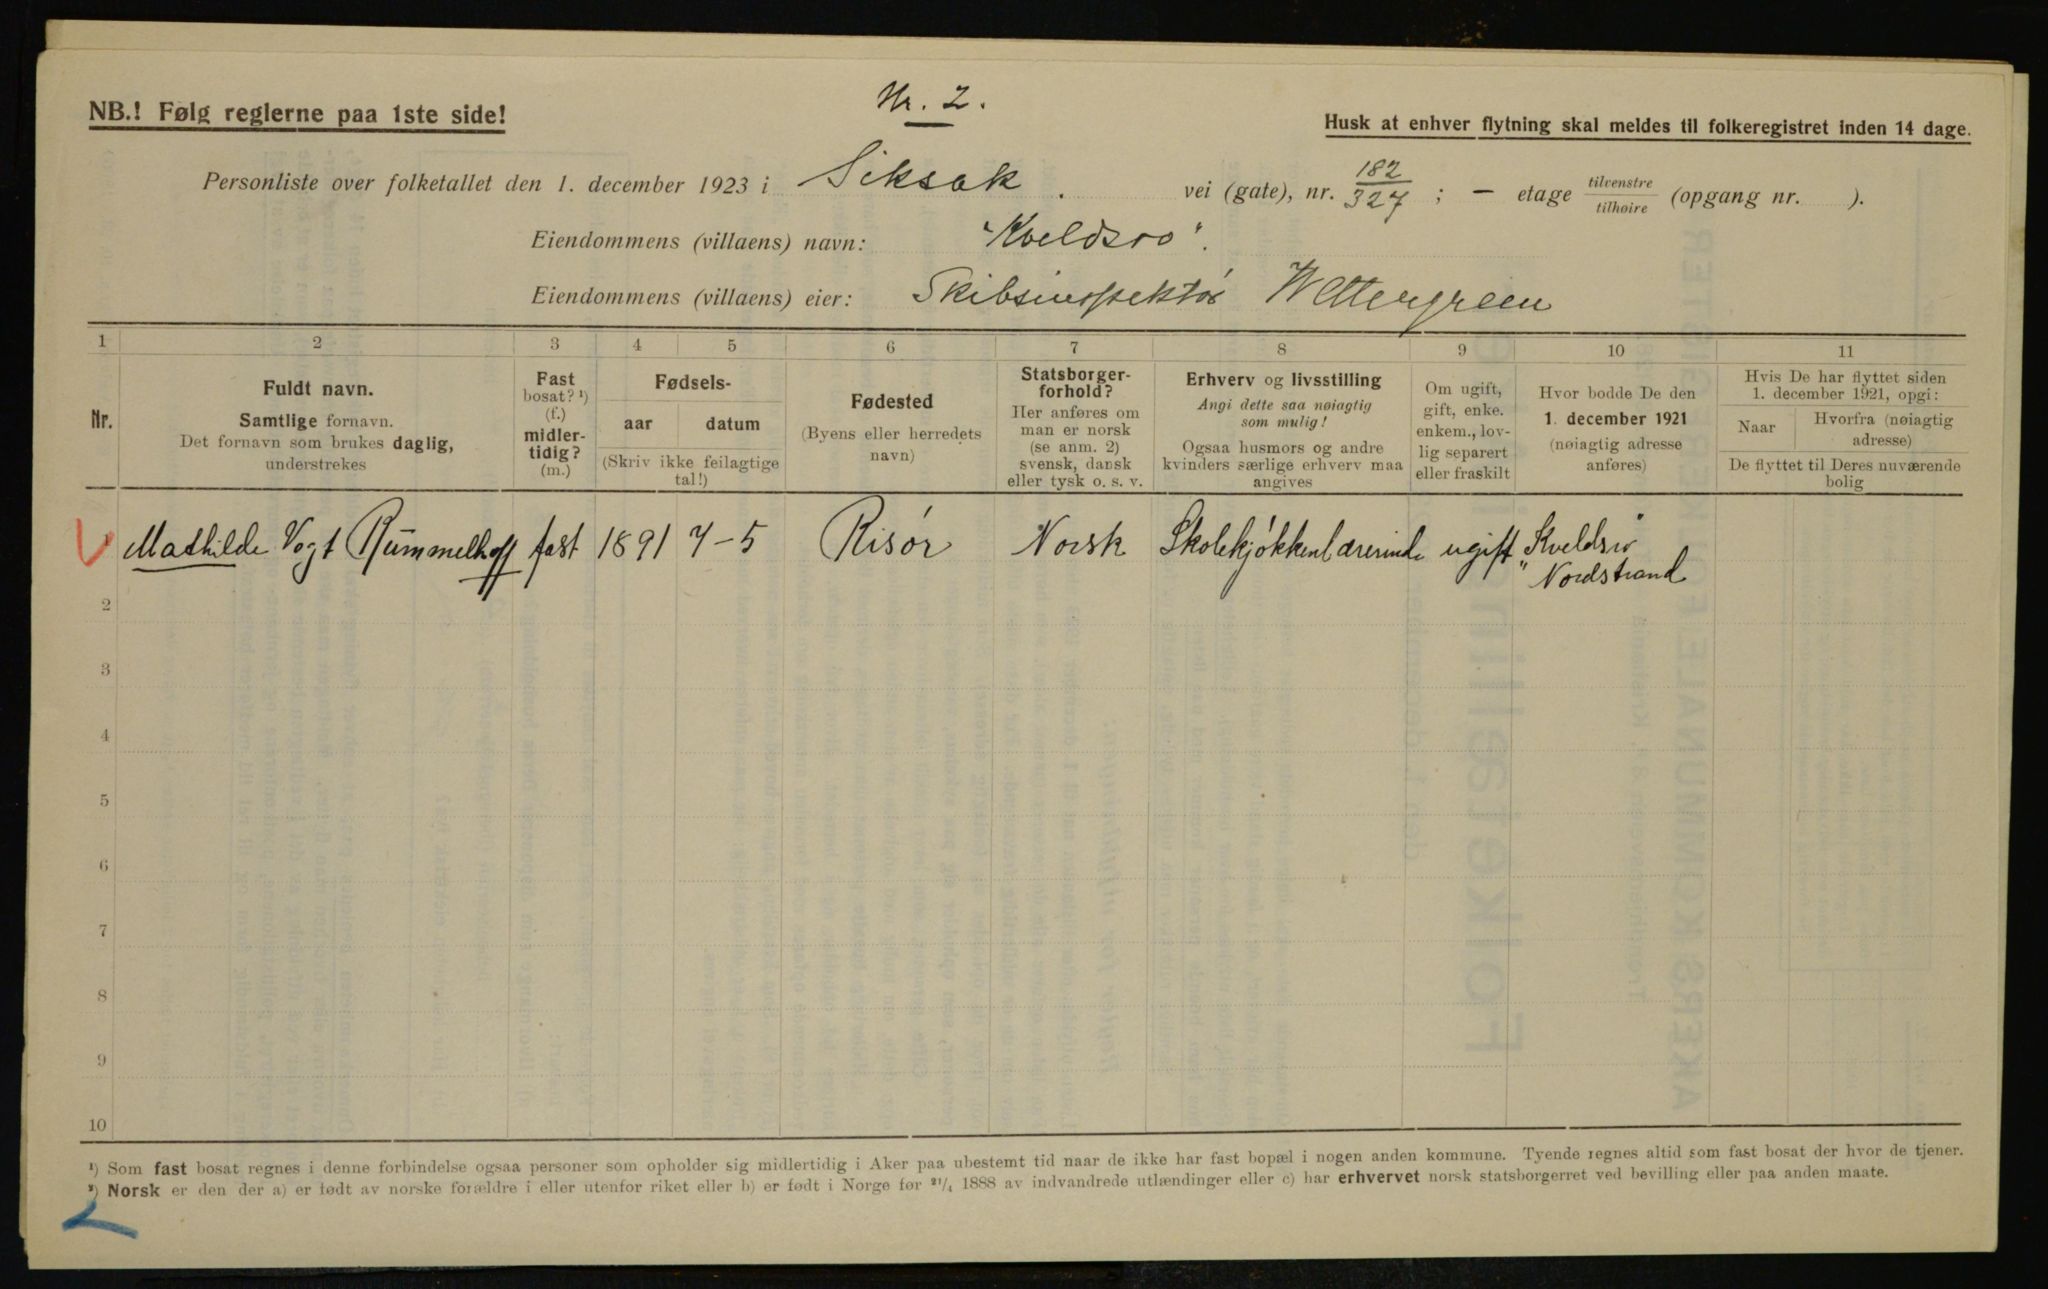 Nr. 2.
NB.! Følg reglerne paa 1ste side!
Husk at enhver flytning skal meldes til folkeregistret inden 14 dage.
Personliste over folketallet den 1. december 1923 i Siksak . vei (gate), nr. 182/327 ; — etage tilvenstre/tilhøire (opgang nr. ).
Eiendommens (villaens) navn: "Kveldsro".
Eiendommens (villaens) eier: Skibsinspektør Wettergreen
1 2 3 4 5 6 7 8 9 10 11
Nr.
Fuldt navn.
Samtlige fornavn.
Det fornavn som brukes daglig,
understrekes
Fast
bosat? ¹)
(f.)
midler-
tidig?
(m.)
Fødsels-
aar datum
(Skriv ikke feilagtige
tal!)
Fødested
(Byens eller herredets
navn)
Statsborger-
forhold?
Her anføres om
man er norsk
(se anm. 2)
svensk, dansk
eller tysk o. s. v.
Erhverv og livsstilling
Angi dette saa nøiagtig
som mulig!
Ogsaa husmors og andre
kvinders særlige erhverv maa
angives
Om ugift,
gift, enke.
enkem., lov-
lig separert
eller fraskilt
Hvor bodde De den
1. december 1921
(nøiagtig adresse
anføres)
Hvis De har flyttet siden
1. december 1921, opgi:
Naar
Hvorfra (nøiagtig
adresse)
De flyttet til Deres nuværende
bolig
1 Mathilde Vogt Rummelhoff fast 1891 7–5 Risør Norsk Skolekjøkkenlærerinde ugift "Kveldsro"
Nordstrand
2
3
4
5
6
7
8
9
10
¹) Som fast bosat regnes i denne forbindelse ogsaa personer som opholder sig midlertidig i Aker paa ubestemt tid naar de ikke har fast bopæl i nogen anden kommune. Tyende regnes altid som fast bosat der hvor de tjener.
²) Norsk er den der a) er født av norske forældre i eller utenfor riket eller b) er født i Norge før ²¹/₄ 1888 av indvandrede utlændinger eller c) har erhvervet norsk statsborgerret ved bevilling eller paa anden maate.